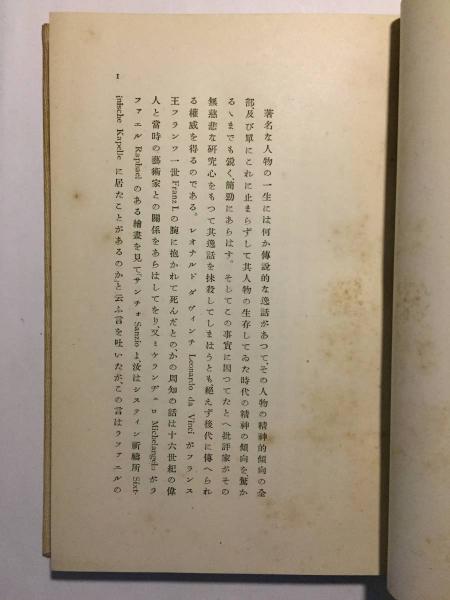 著名な人物の一生には何か傳說的な逸話があつて、その人物の精神的傾向の全
部、及び單にこれに止まらずして其人物の生存してゐた時代の精神の傾向を、驚か
るゝまでも銳く、簡勁にあらはす。そしてこの事實に因つてたとへ批評家がその
無慈悲な硏究心をもつて其逸話を抹殺してしまはうとも絕えず後代に傳へられ
る權威を得るのである。レオナルド ダ ヴィンチ Leonardo da Vinci がフランス
王フランツ一世 Franz I. の腕に抱かれて死んだとの、かの周知の話は十六世紀の偉
人と當時の藝術家との關係をあらはしてをり、又ミケランヂェロ Michelangelo がラ
ファエル Raphael のある繪畫を見て、サンチォ Sanzio よ、汝はシスティン祈禱所 Sixt-
inische Kapelle に居たことがあるのかと云ふ言を吐いたが、この言はラファエルの
1